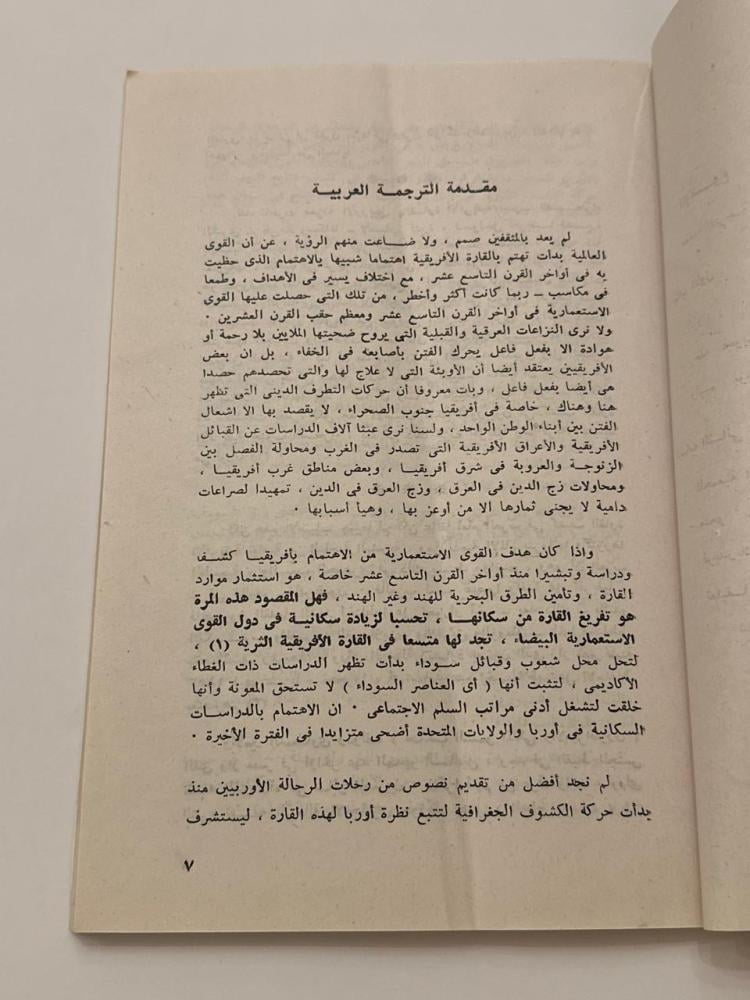 مقدمة الترجمة العربية
لم يعد بالمثقفين صمم ، ولا ضاعت منهم الرؤية ، عن أن القوى
العالمية بدأت تهتم بالقارة الأفريقية اهتماما شبيها بالاهتمام الذى حظيت
به فى أواخر القرن التاسع عشر ، مع اختلاف يسير فى الأهداف ، وطمعا
فى مكاسب ــ ربما كانت أكثر وأخطر ، من تلك التى حصلت عليها القوى
الاستعمارية فى أواخر القرن التاسع عشر ومعظم حقب القرن العشرين ٠
ولا نرى النزاعات العرقية والقبلية التى يروح ضحيتها الملايين بلا رحمة أو
هوادة الا بفعل فاعل يحرك الفتن بأصابعه فى الخفاء ، بل ان بعض
الأفريقيين يعتقد أيضا أن الأوبئة التى لا علاج لها والتى تحصدهم حصدا
هى أيضا بفعل فاعل ، وبات معروفا أن حركات التطرف الدينى التى تظهر
هنا وهناك ، خاصة فى أفريقيا جنوب الصحراء ، لا يقصد بها الا اشعال
الفتن بين أبناء الوطن الواحد ، ولسنا نرى عبثا آلاف الدراسات عن القبائل
الأفريقية والأعراق الأفريقية التى تصدر فى الغرب ومحاولة الفصل بين
الزنوجة والعروبة فى شرق أفريقيا ، وبعض مناطق غرب أفريقيا ،
ومحاولات زج الدين فى العرق ، وزج العرق فى الدين ، تمهيدا لصراعات
دامية لا يجنى ثمارها الا من أوعز بها ، وهيأ أسبابها ٠
واذا كان هدف القوى الاستعمارية من الاهتمام بأفريقيا كشف
ودراسة وتبشيرا منذ أواخر القرن التاسع عشر خاصة ، هو استثمار موارد
القارة ، وتأمين الطرق البحرية للهند وغير الهند ، فهل المقصود هذه المرة
هو تفريغ القارة من سكانها ، تحسبا لزيادة سكانية فى دول القوى
الاستعمارية البيضاء ، تجد لها متسعا فى القارة الأفريقية الثرية (١) ،
لتحل محل شعوب وقبائل سوداء بدأت تظهر الدراسات ذات الغطاء
الأكاديمى ، لتثبت أنها ( أى العناصر السوداء ) لا تستحق المعونة وأنها
خلقت لتشغل أدنى مراتب السلم الاجتماعى ٠ ان الاهتمام بالدراسات
السكانية فى أوربا والولايات المتحدة أضحى متزايدا فى الفترة الأخيرة ٠
لم نجد أفضل من تقديم نصوص من رحلات الرحالة الأوربيين منذ
بدأت حركة الكشوف الجغرافية لتتبع نظرة أوربا لهذه القارة ، ليستشرف
٧